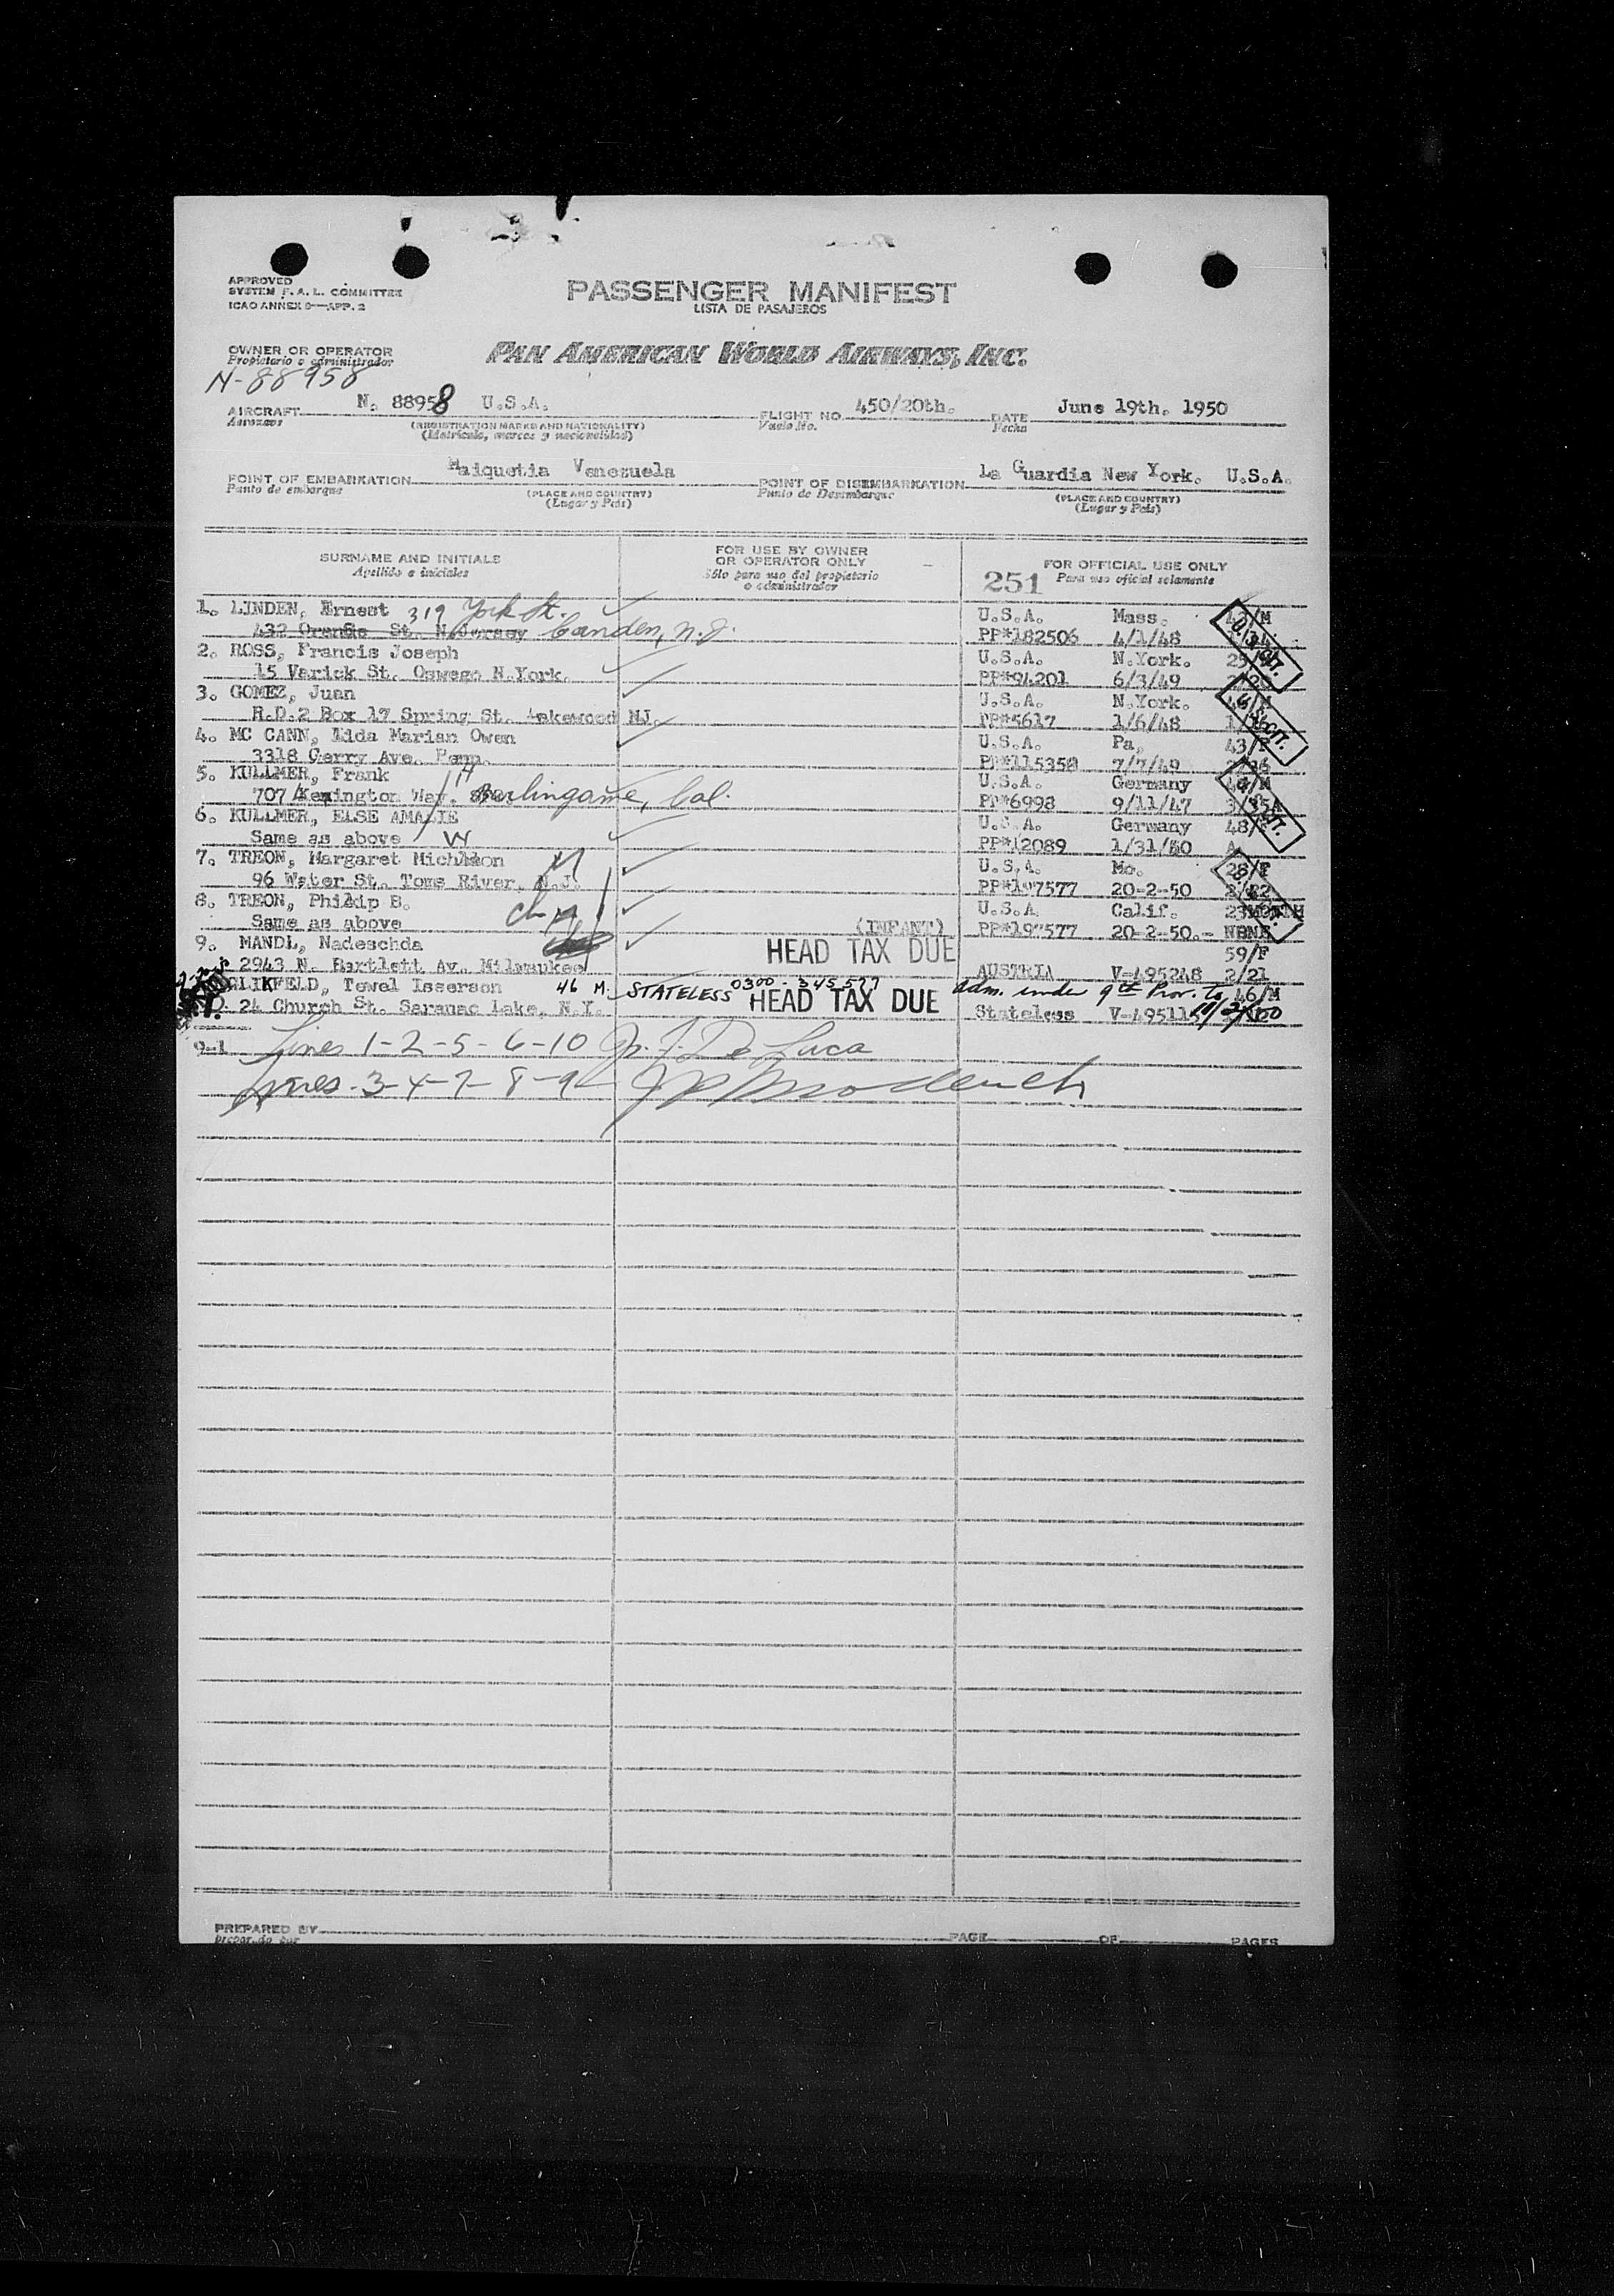 APPROVED
SYSTEM F. A. L. COMMITTEE
ICAO ANNEX 9—APP. 2
PASSENGER MANIFEST
LISTA DE PASAJEROS
OWNER OR OPERATOR
Propietario o administrador
PAN AMERICAN WORLD AIRWAYS, INC.
N-88958
AIRCRAFT N. 88958 U.S.A. FLIGHT NO. 450/20th. DATE June 19th. 1950
Aeronave (REGISTRATION MARKS AND NATIONALITY) Vuelo No. Fecha
(Matrícula, marcas y nacionalidad)
POINT OF EMBARKATION Maiquetia Venezuela POINT OF DISEMBARKATION La Guardia New York. U.S.A.
Punto de embarque (PLACE AND COUNTRY) Punto de Desembarque (PLACE AND COUNTRY)
(Lugar y País) (Lugar y País)
SURNAME AND INITIALS FOR USE BY OWNER OR OPERATOR ONLY FOR OFFICIAL USE ONLY
Apellido e iniciales Sólo para uso del propietario o administrador 251 Para uso oficial solamente
1. LINDEN, Ernest 319 York St. U.S.A. Mass.
432 Orange St. N.Jersey Camden, N.J. PP*182506 4/1/48
2. ROSS, Francis Joseph U.S.A. N.York.
15 Varick St. Oswego N.York. PP*94201 6/3/49
3. GOMEZ, Juan U.S.A. N.York.
R.D.2 Box 17 Spring St. Lakewood NJ. PP*5617 1/6/48
4. MC CANN, Lida Marian Owen U.S.A. Pa, 43/F
3318 Gerry Ave. Penn. PP*115358 7/7/49
5. KULLMER, Frank U.S.A. Germany
707 Burlingame, Cal. PP*6998 9/11/47
6. KULLMER, ELSE AMALIE U.S.A. Germany 48/F
Same as above PP*12089 1/31/50 A
7. TREON, Margaret U.S.A. Mo. 28/F
96 Water St. Toms River, N.J. PP*197577 20-2-50 2/22
8. TREON, Philip B. U.S.A. Calif.
Same as above (INFANT) PP*197577 20-2-50.- NONE
9. MANDL, Nadeschda HEAD TAX DUE 59/F
2943 N. Bartlett Av. Milwaukee AUSTRIA V-495248 2/21
GLIKFELD, Tewel Isserson 46 M. STATELESS 0300-345,577 adm. under 9th Prov. to 46/M
24 Church St. Saranac Lake, N.Y. HEAD TAX DUE Stateless V-495115
9-1 Lines 1-2-5-6-10 De Luca
Lines-3-4-7-8-9-
PREPARED BY PAGE OF PAGES